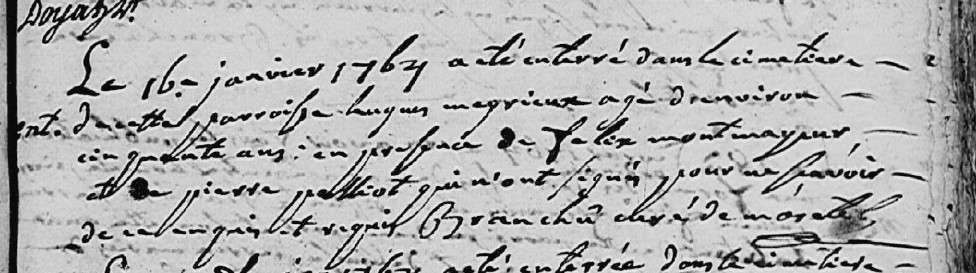 Le 16e janvier 1764 a eté enterré dans le cimetiere
de cette parroisse hugues megrieux agé denviron
cinquante ans : en presence de Felix montmayeur
et de pierre palliot qui n'ont signés pour ne sçavoir
de ce enquis et requis Branchu curé de morêtel
a eté enterrée dans le cimetiere